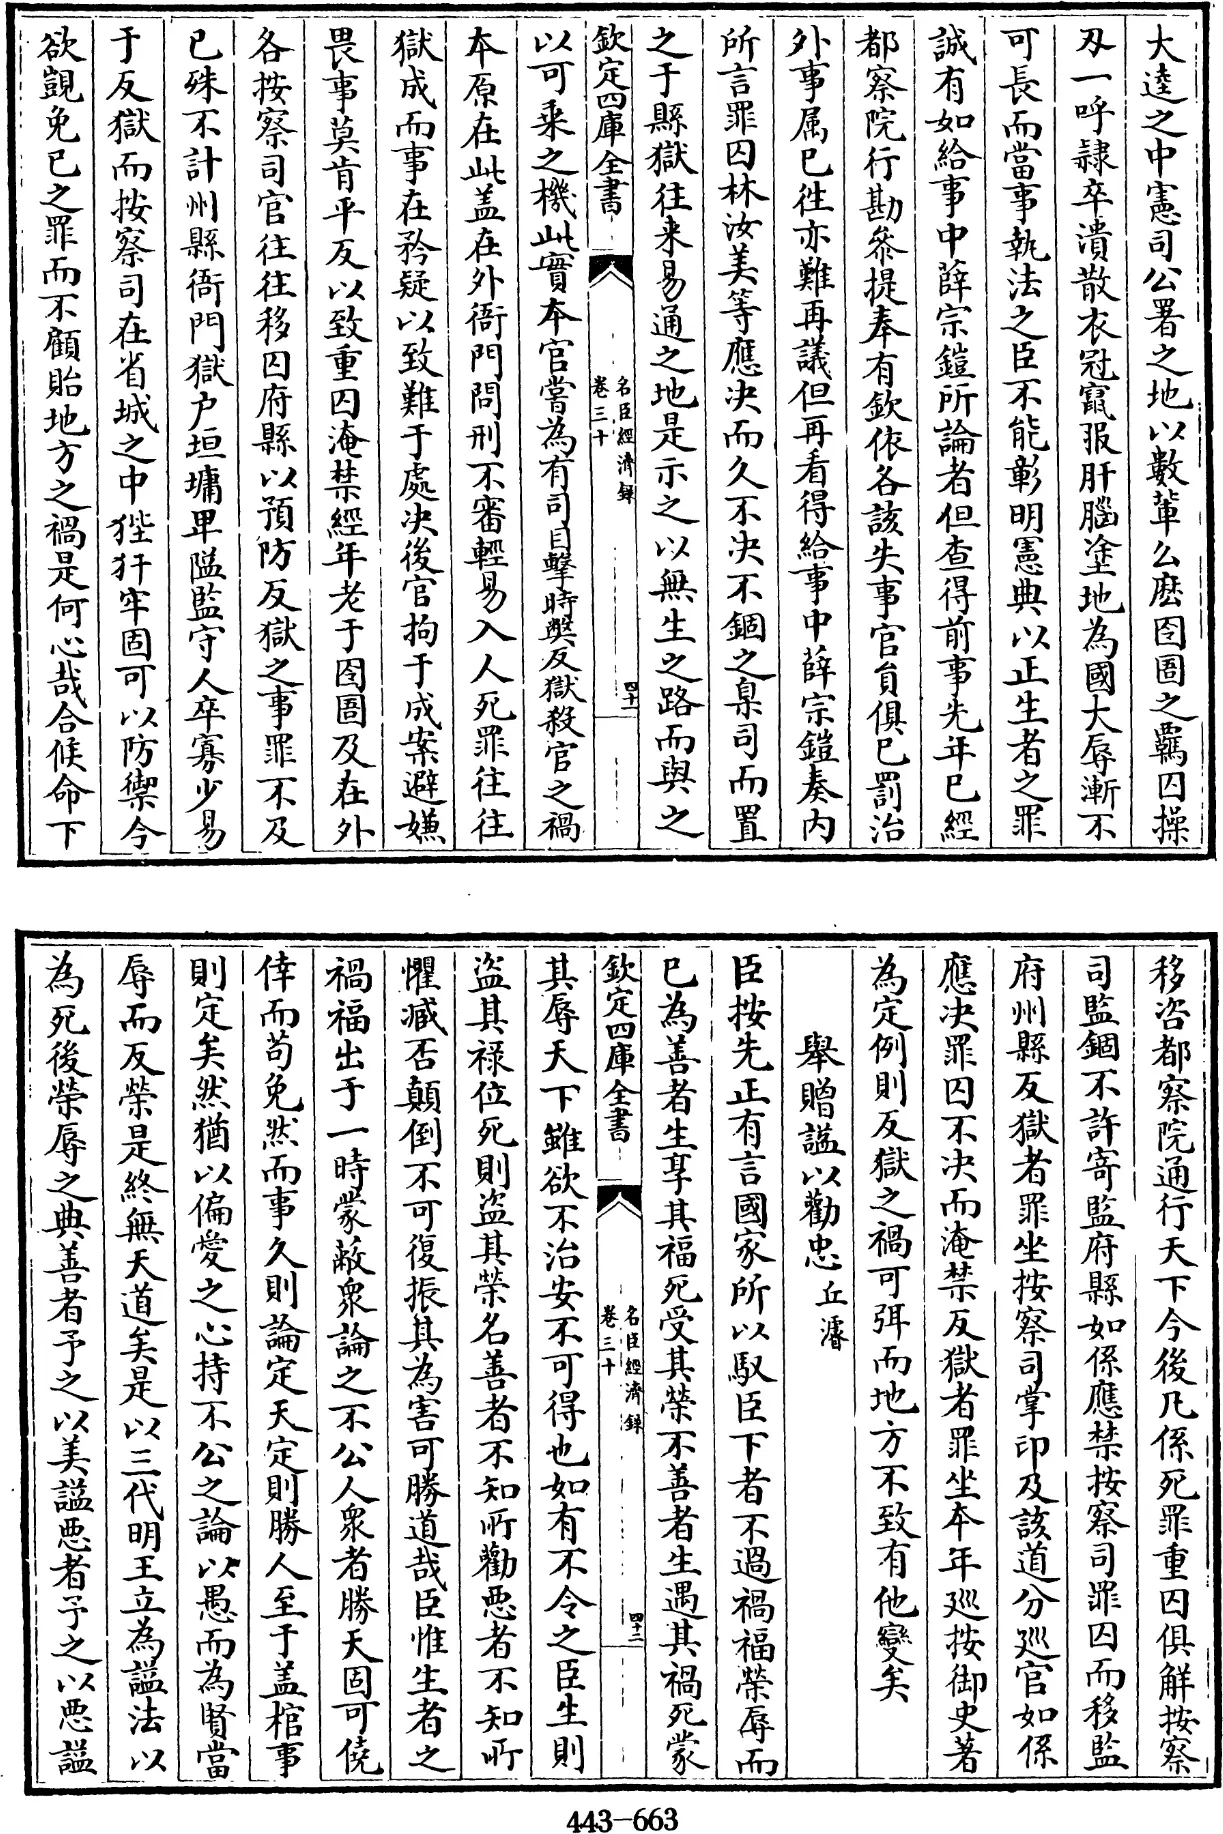 大逵之中憲司公署之地以數輩么麽囹圄之羈囚操
刄一呼隷卒潰散衣冠竄服肝腦塗地為國大辱漸不
可長而當事執法之臣不能彰明憲典以正生者之罪
誠有如給事中薛宗鎧所論者但查得前事先年已經
都察院行勘叅提奉有欽依各該失事官員俱已罰治
外事屬已徃亦難再議但再看得給事中薛宗鎧奏內
所言罪囚林汝美等應決而久不決不錮之臬司而置
之于縣獄往來易通之地是示之以無生之路而與之
欽定四庫全書
名臣經濟録
卷三十
四十一
以可乗之機此實本官嘗為有司目擊時獘反獄殺官之禍
本原在此盖在外衙門問刑不審輕易入人死罪往往
獄成而事在矜疑以致難于處決後官拘于成案避嫌
畏事莫肯平反以致重囚淹禁經年老于囹圄及在外
各按察司官往往移囚府縣以預防反獄之事罪不及
已殊不計州縣衙門獄户垣墉卑隘監守人卒寡少易
于反獄而按察司在省城之中狴犴牢固可以防禦今
欲覬免已之罪而不顧貽地方之禍是何心哉合候命下
移咨都察院通行天下今後凡係死罪重囚俱解按察
司監錮不許寄監府縣如係應禁按察司罪囚而移監
府州縣反獄者罪坐按察司掌印及該道分廵官如係
應決罪囚不決而淹禁反獄者罪坐本年廵按御史著
為定例則反獄之禍可弭而地方不致有他變矣
舉贈諡以勸忠 丘濬
臣按先正有言國家所以馭臣下者不過禍福榮辱而
已為善者生享其福死受其榮不善者生遇其禍死蒙
欽定四庫全書
名臣經濟録
卷三十
四十二
其辱天下雖欲不治安不可得也如有不令之臣生則
盜其祿位死則盜其榮名善者不知所勸惡者不知所
懼臧否顛倒不可復振其為害可勝道哉臣惟生者之
禍福出于一時蒙蔽衆論之不公人衆者勝天固可僥
倖而苟免然而事久則論定天定則勝人至于盖棺事
則定矣然猶以偏愛之心持不公之論以愚而為賢當
辱而反榮是終無天道矣是以三代明王立為諡法以
為死後榮辱之典善者予之以美諡惡者予之以惡諡
443-663